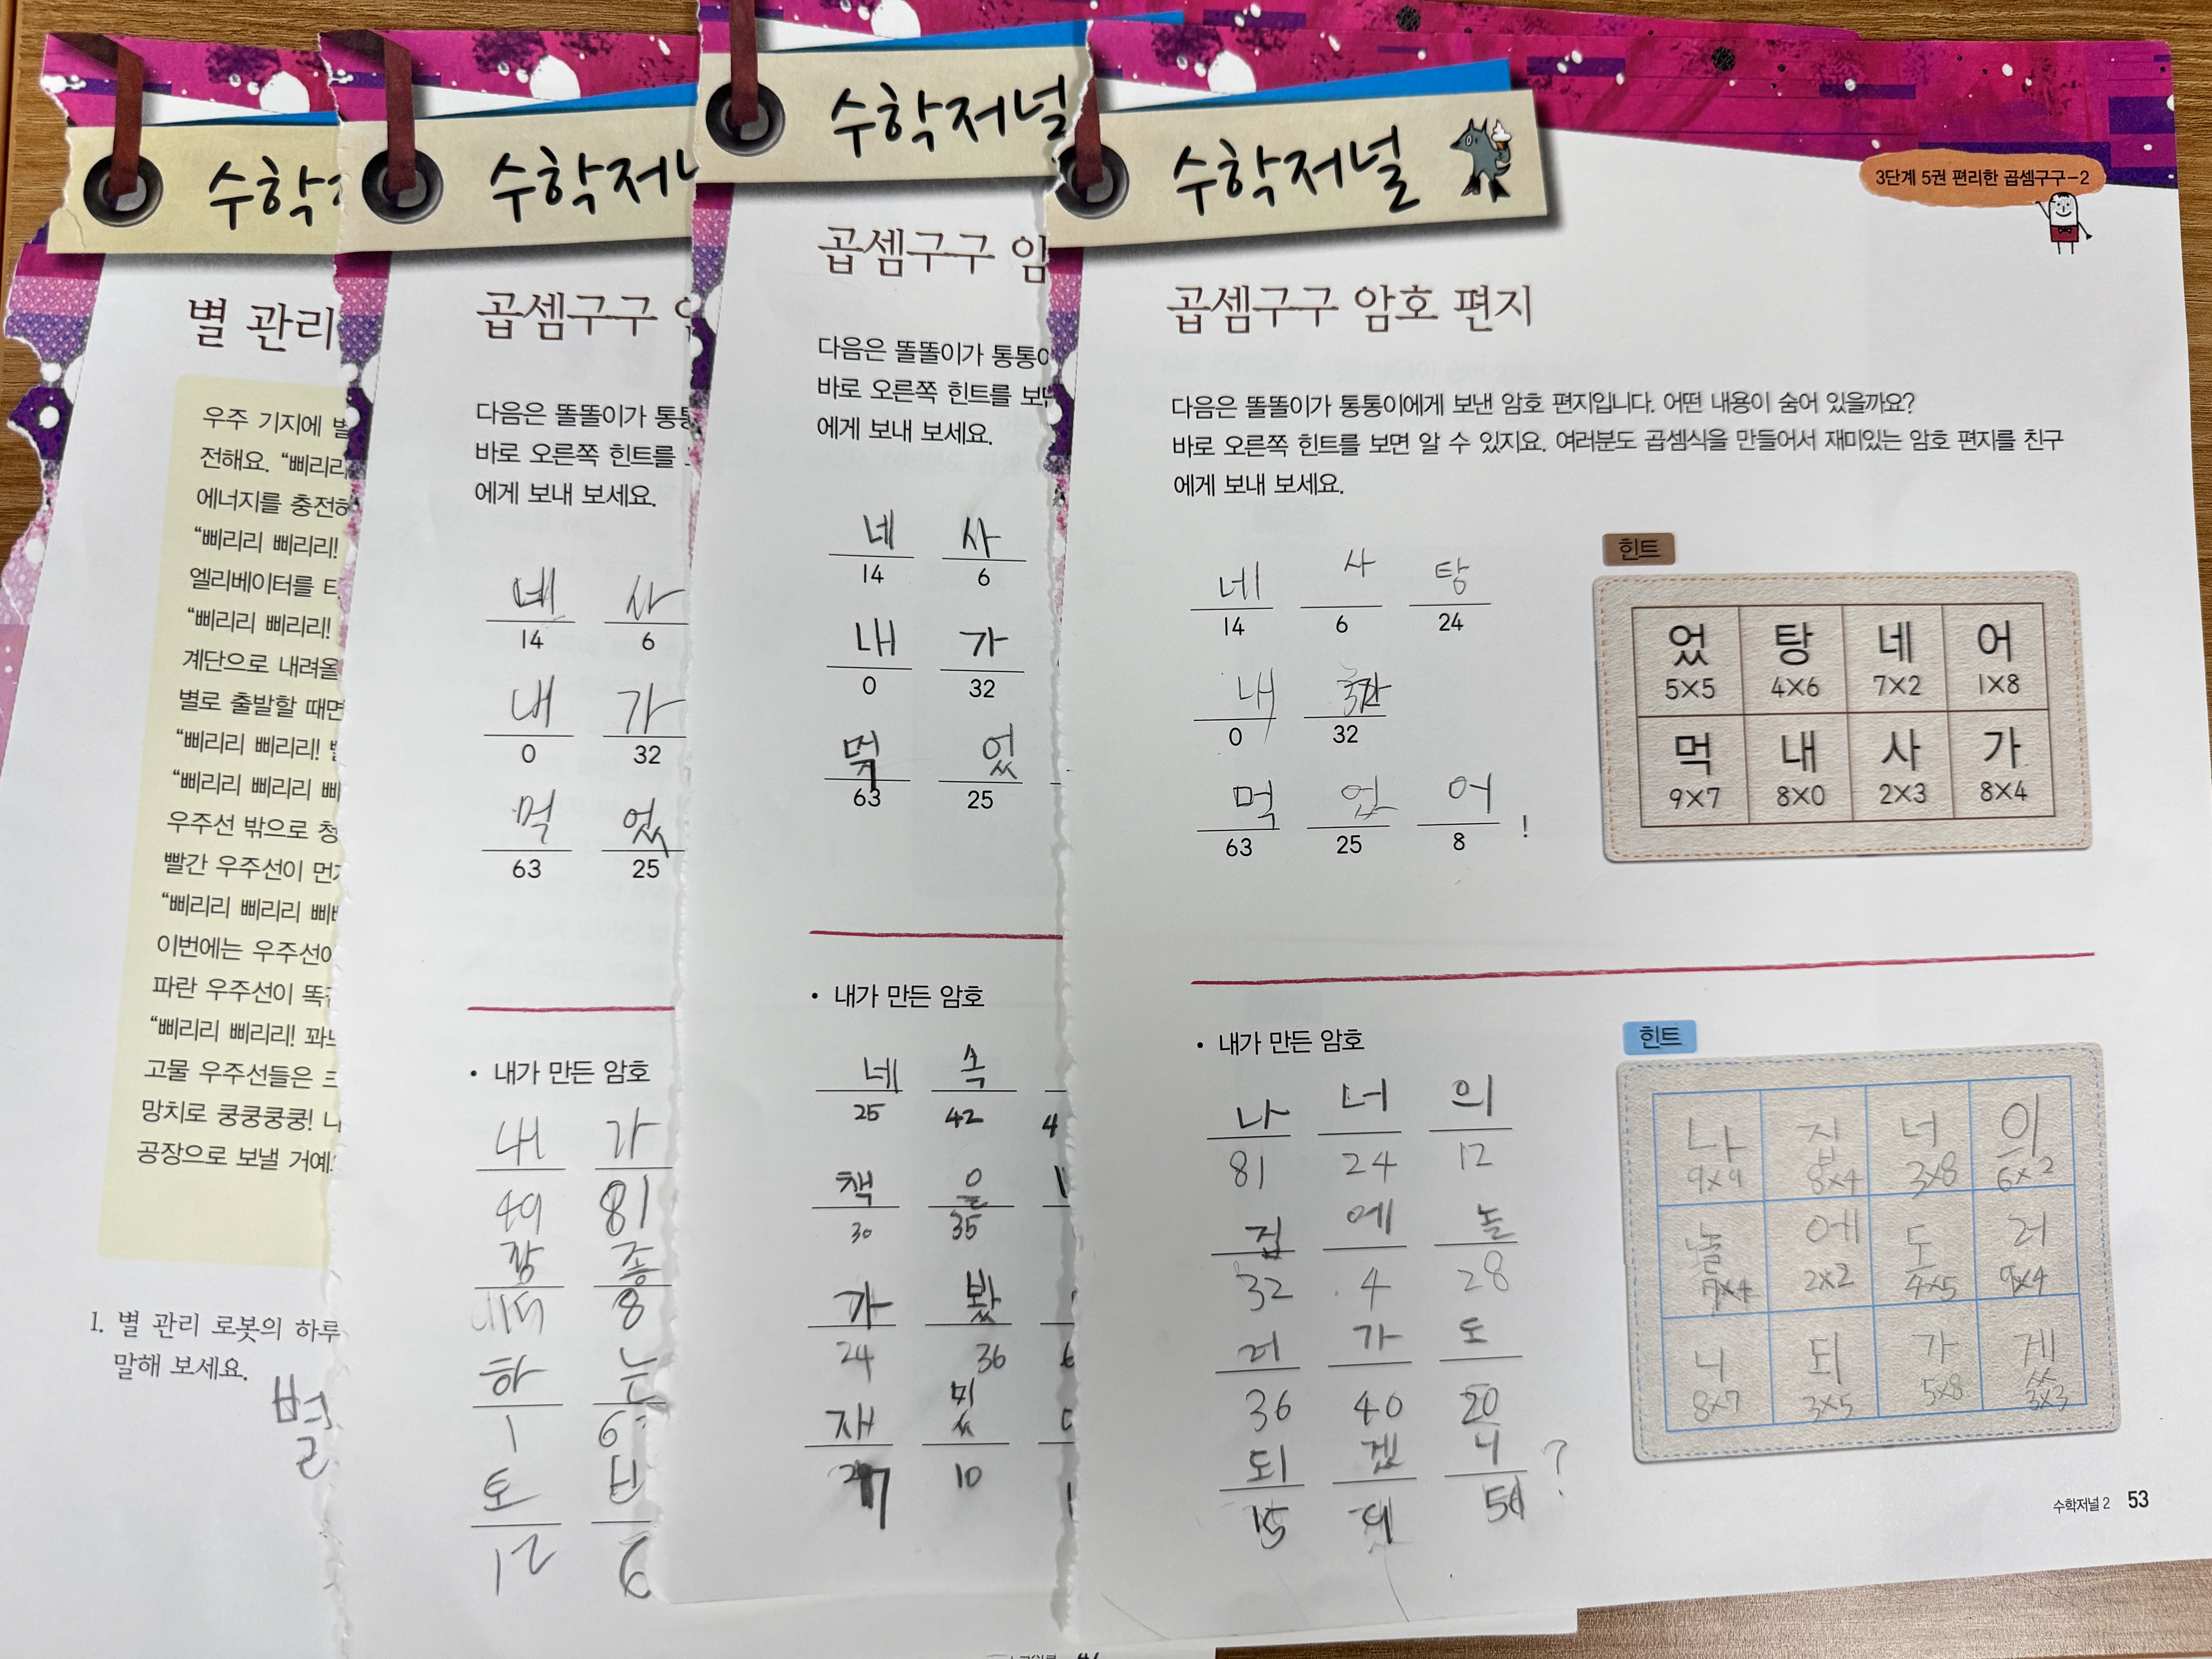 수학
별 관리
우주 기지에 별
전해요. “삐리리
에너지를 충전하
“삐리리 삐리리!
엘리베이터를 타
“삐리리 삐리리!
계단으로 내려올
별로 출발할 때면
“삐리리 삐리리!
“삐리리 삐리리 삐
우주선 밖으로 청
빨간 우주선이 먼
“삐리리 삐리리 삐
이번에는 우주선이
파란 우주선이 똑
“삐리리 삐리리! 꽈
고물 우주선들은
망치로 쿵쿵쿵쿵! 나
공장으로 보낼 거예
1. 별 관리 로봇의 하루
말해 보세요.
별
수학저널
곱셈구구
다음은 똘똘이가 통통
바로 오른쪽 힌트를
에게 보내 보세요.
네 사
14 6
내 가
0 32
먹 었
63 25
• 내가 만든 암호
내 가
49 81
좋
8
하 는
1 6
토
21
수학저널
곱셈구구 암
다음은 똘똘이가 통통이
바로 오른쪽 힌트를 보면
에게 보내 보세요.
네 사
14 6
내 가
0 32
먹 었
63 25
• 내가 만든 암호
네 속
25 42 4
책 을
30 35
가 봤
24 36 6
재 밌
10
수학저널
3단계 5권 편리한 곱셈구구-2
곱셈구구 암호 편지
다음은 똘똘이가 통통이에게 보낸 암호 편지입니다. 어떤 내용이 숨어 있을까요?
바로 오른쪽 힌트를 보면 알 수 있지요. 여러분도 곱셈식을 만들어서 재미있는 암호 편지를 친구
에게 보내 보세요.
네 사 탕
14 6 24
내 가
0 32
먹 었 어
63 25 8 !
힌트
었 탕 네 어
5×5 4×6 7×2 1×8
먹 내 사 가
9×7 8×0 2×3 8×4
• 내가 만든 암호
나 너 의
81 24 12
집 에 놀
32 4 28
러 가 도
36 40 20
되 겠 니 ?
15 9 56
힌트
나 집 너 의
9×9 8×4 3×8 6×2
놀 에 도 러
7×4 2×2 4×5 9×4
니 되 가 겠
8×7 3×5 5×8 3×3
수학저널 2 53